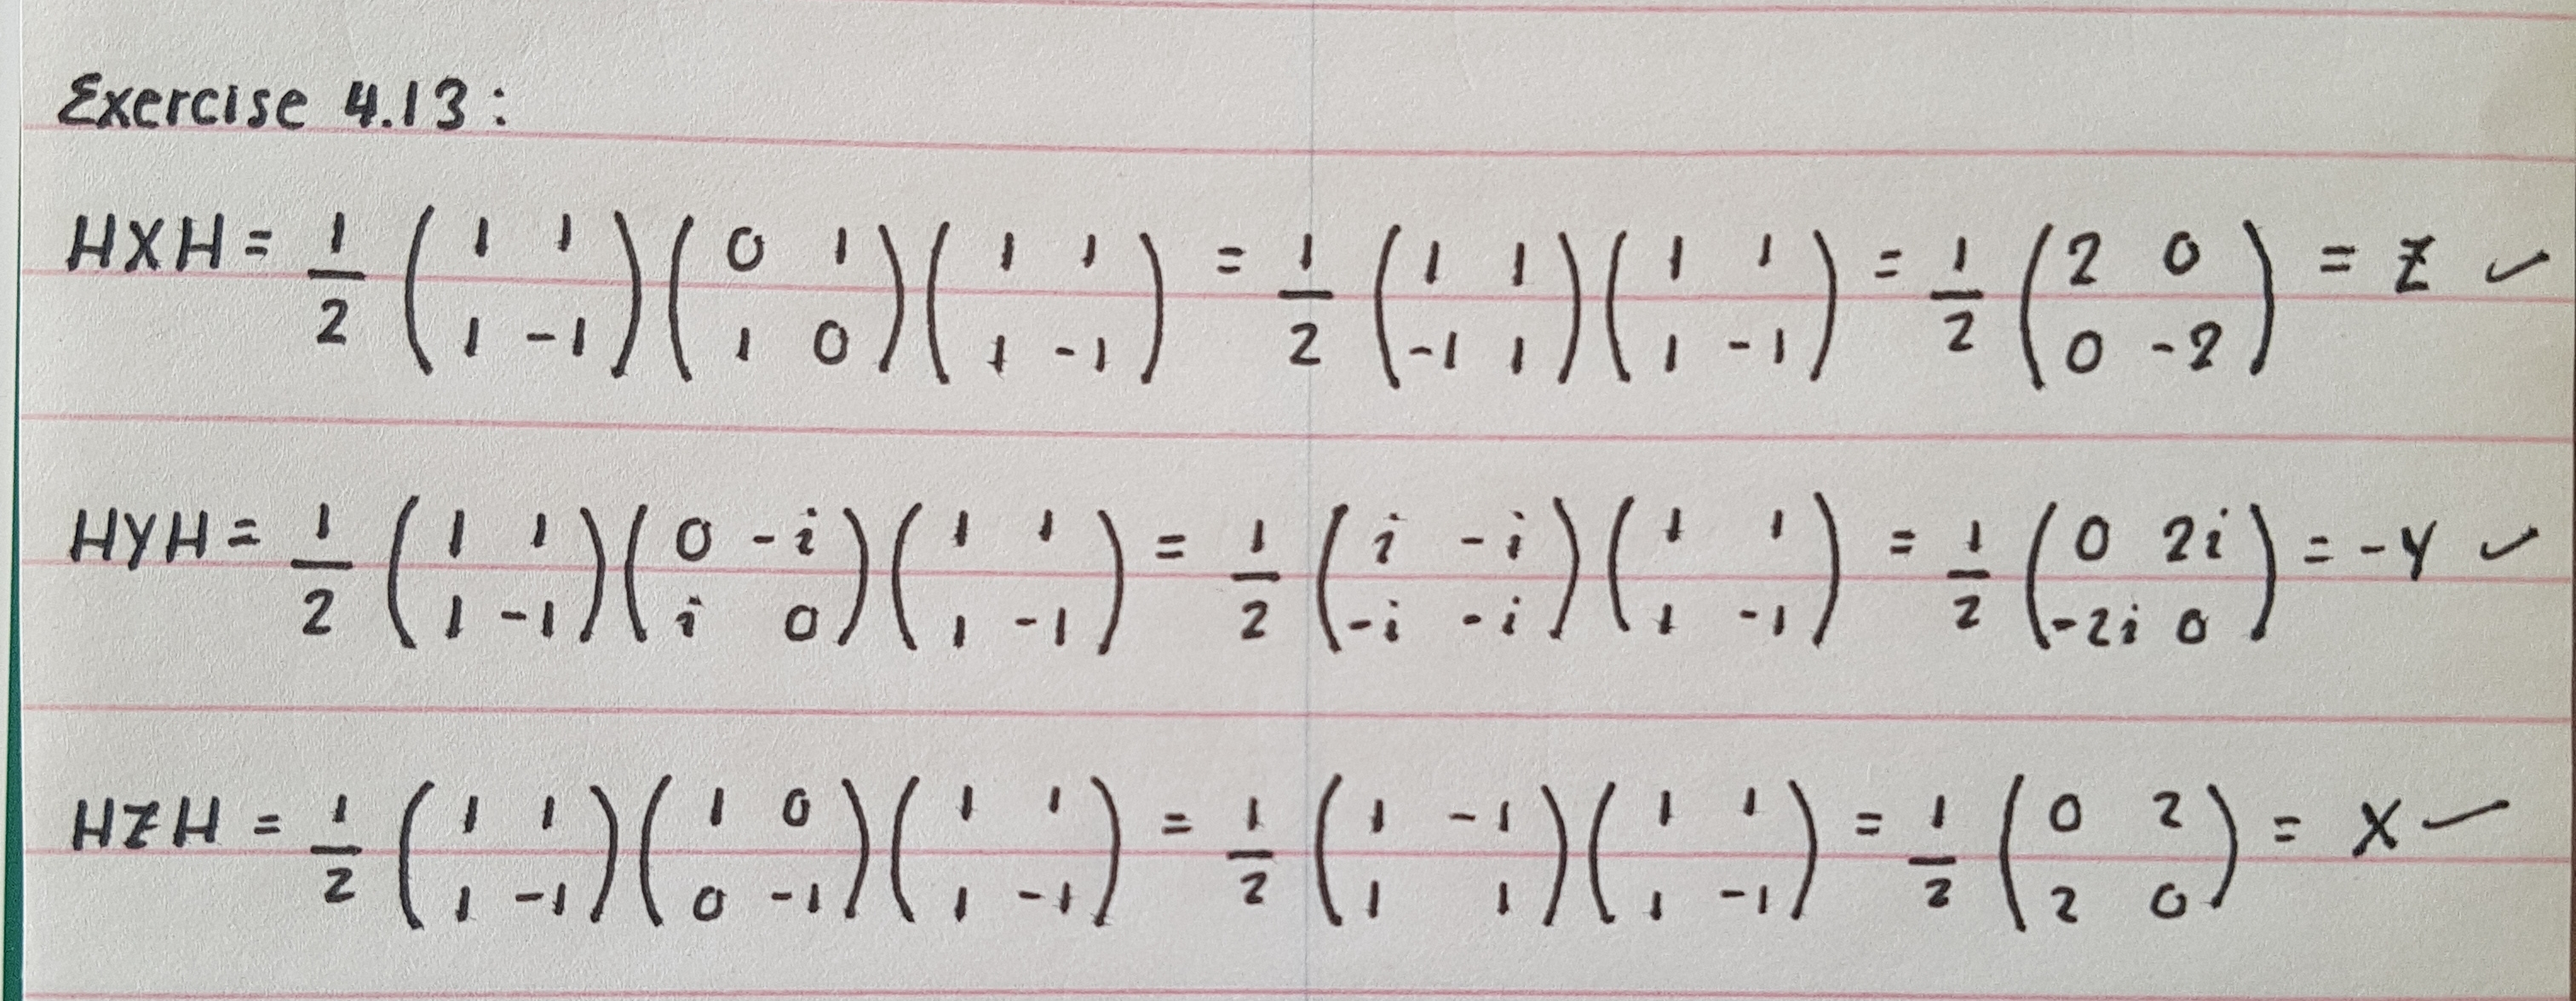 Exercise 4.13:
HXH = 1/2 (1 1; 1 -1)(0 1; 1 0)(1 1; 1 -1) = 1/2 (1 1; -1 1)(1 1; 1 -1) = 1/2 (2 0; 0 -2) = Z ✓
HYH = 1/2 (1 1; 1 -1)(0 -i; i 0)(1 1; 1 -1) = 1/2 (i -i; -i -i)(1 1; 1 -1) = 1/2 (0 2i; -2i 0) = -Y ✓
HZH = 1/2 (1 1; 1 -1)(1 0; 0 -1)(1 1; 1 -1) = 1/2 (1 -1; 1 1)(1 1; 1 -1) = 1/2 (0 2; 2 0) = X ✓